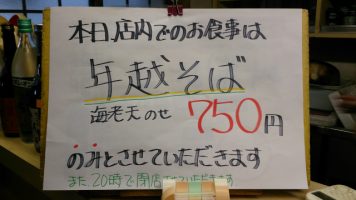 本日、店内でのお食事は
年越そば
海老天のせ 750円
のみとさせていただきます
また20時で閉店させていただきます